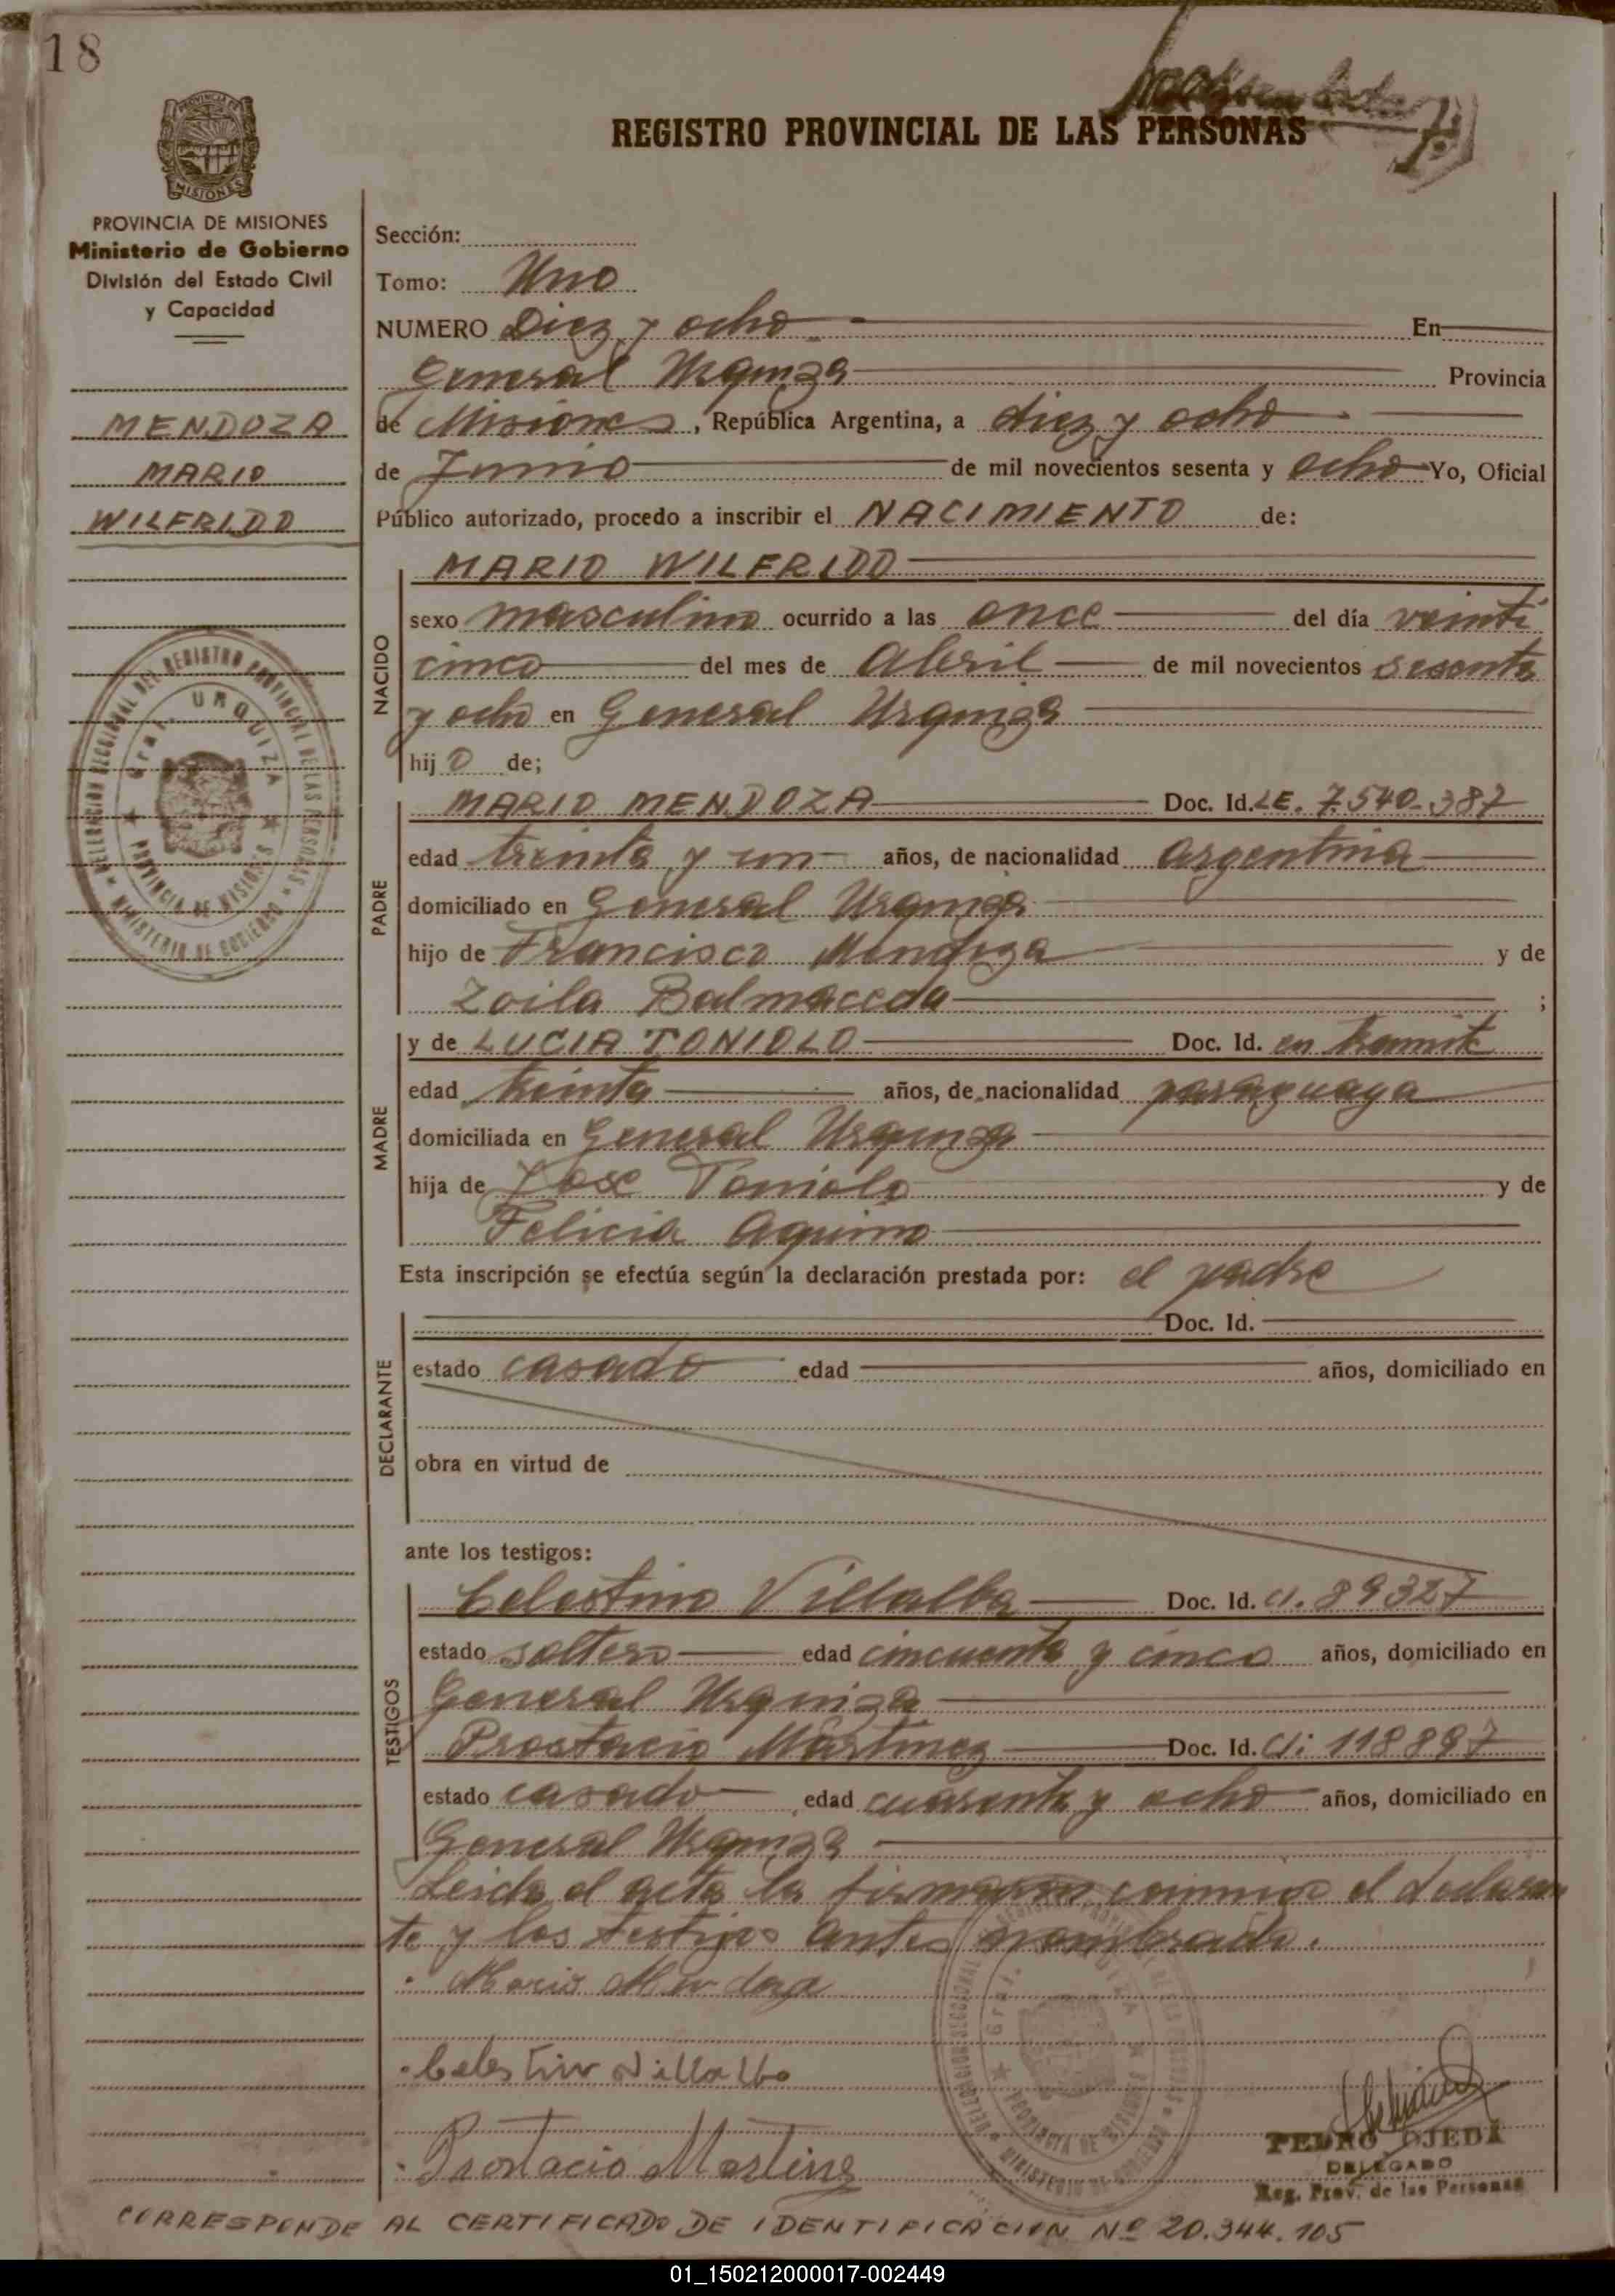 18
REGISTRO PROVINCIAL DE LAS PERSONAS
PROVINCIA DE MISIONES
Ministerio de Gobierno
División del Estado Civil
y Capacidad
MENDOZA
MARIO
WILFRIDO
Sección:
Tomo: Uno
NUMERO Diez y ocho En
General Urquiza Provincia
de Misiones, República Argentina, a diez y ocho
de Junio de mil novecientos sesenta y ocho Yo, Oficial
Público autorizado, procedo a inscribir el NACIMIENTO de:
NACIDO
MARIO WILFRIDO
sexo masculino ocurrido a las once del día veinti
cinco del mes de Abril de mil novecientos sesenta
y ocho en General Urquiza
hijo de;
PADRE
MARIO MENDOZA Doc. Id. LE. 7.540.387
edad treinta y un años, de nacionalidad argentina
domiciliado en General Urquiza
hijo de Francisco Mendoza y de
Zoila Balmaceda ;
MADRE
y de LUCIA TONIOLO Doc. Id. en tramite
edad treinta años, de nacionalidad paraguaya
domiciliada en General Urquiza
hija de Jose Toniolo y de
Felicia Aquino
Esta inscripción se efectúa según la declaración prestada por: el padre
DECLARANTE
Doc. Id.
estado casado edad años, domiciliado en
obra en virtud de
ante los testigos:
TESTIGOS
Celestino Villalba Doc. Id. CI. 89327
estado soltero edad cincuenta y cinco años, domiciliado en
General Urquiza
Martinez Doc. Id. CI: 118887
estado casado edad cuarenta y ocho años, domiciliado en
General Urquiza
Leida el acta la firmaron conmigo el declaran
te y los testigos antes nombrado.
Mario Mendoza
Celestino Villalba
PEDRO OJEDA
DELEGADO
Reg. Prov. de las Personas
CORRESPONDE AL CERTIFICADO DE IDENTIFICACION Nº 20.344.105
01_150212000017-002449